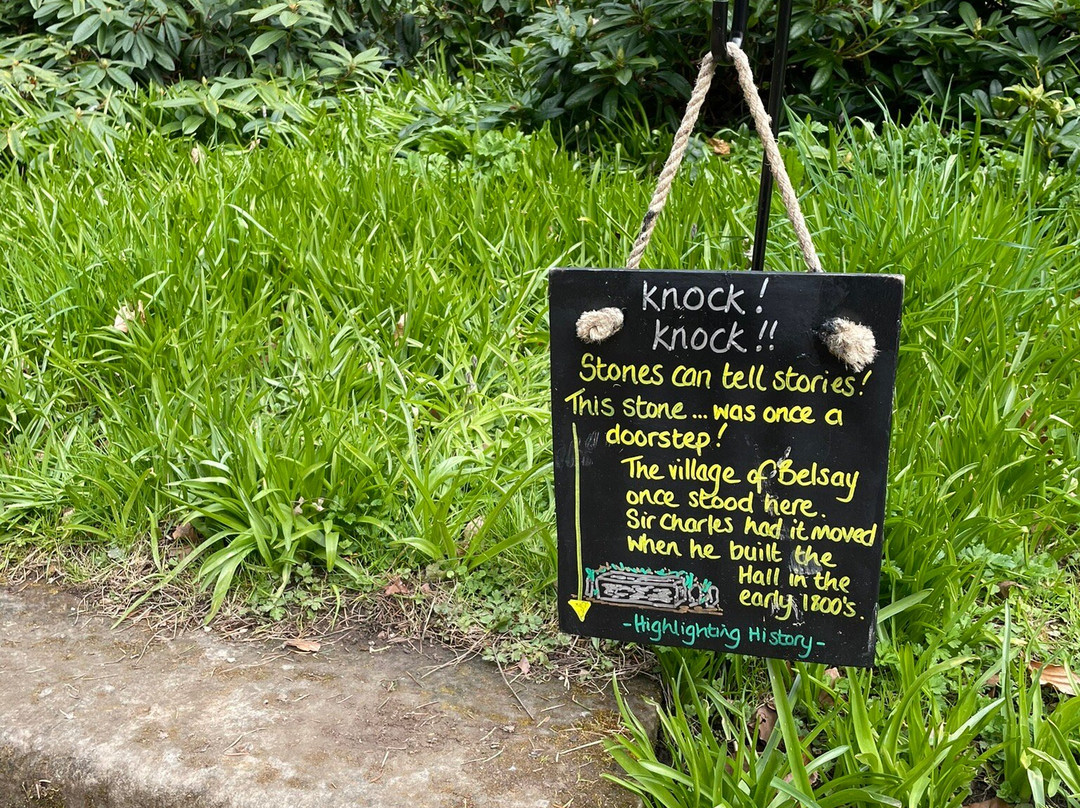 Knock!
Knock!!
Stones can tell stories!
This stone... was once a
doorstep!
The village of Belsay
once stood here.
Sir Charles had it moved
when he built the
Hall in the
early 1800's.
-Highlighting History-